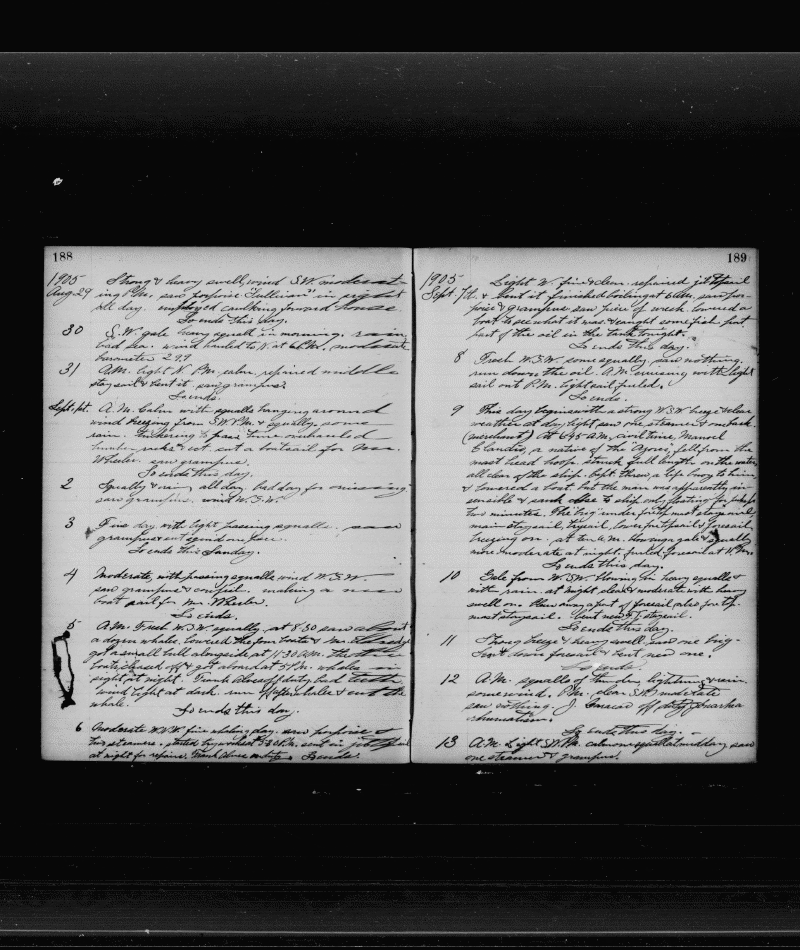 188
1905 Strong & heavy swell, wind S.W. moderat-
Aug. 29 ing P.M. saw porpoise "Sullivan" in sight
all day. employed caulking forward house
So ends this day.
30 S.W. gale heavy squalls in morning, rain,
bad sea. wind hauled to N. at 6 P.M. moderate
barometer 29.9
31 A.M. light N. P.M. calm. repaired middle
staysail & bent it. saw grampus.
So ends.
Sept. 1st. A.M. Calm with squalls hanging around
wind breezing from S.W. P.M. & squally, some
rain. to pass time overhauled
& cut out a boatsail for Mr.
Wheeler. saw grampus.
So ends this day.
2 Squally & rain, all day bad day for
saw grampus. wind W.S.W.
3 Fine day with light passing squalls. saw
grampus
So ends this Sunday.
4 Moderate, with passing squalls wind W.S.W.
saw grampus & making a new
boat sail for Mr. Wheeler.
So ends.
5 A.M. Fresh W.S.W. squally, at 8.30 saw about
a dozen whales. lowered the four boats & Mr.
got a small bull alongside at 11.30 A.M. the other
boats chased off & got aboard at 5 P.M. whales in
sight at night. Frank off duty bad teeth
wind light at dark. run off after whales & cut the
whale.
So ends this day.
6 Moderate W.S.W. fine whaling day. saw porpoise &
two steamers. started tryworks at 5.30 P.M. sent in
at night for repairs. Frank So ends.
189
1905 Light W. fine & clear. repaired jib topsail
Sept. 7th. & bent it finished boiling at 6 A.M. saw por-
poise & grampus saw piece of wreck lowered a
boat to see what it was & caught some fish put
part of the oil in the tank tonight.
So ends this day.
8 Fresh W.S.W. some squally, saw nothing.
run down the oil. A.M. cruising with light
sail out P.M. light sail furled.
So ends.
9 This day begins with a strong W.S.W. breeze & clear
weather at day light saw one steamer & one bark.
(merchant) At 6.45 A.M. civil time, Manuel
Claudio, a native of the Azores, fell from the
mast head hoops, struck full length on the water,
all clear of the ship. Capt. threw a life buoy to him
& lowered a boat but the man was apparently in-
sensible & sank close to ship only floating for perhaps
two minutes. The brig under foretopmast staysail
main staysail, trysail, lower foretopsail & foresail,
breezing on. at ten A.M. blowing a gale & squally
more moderate at night. furled foresail at 11 A.M.
So ends this day.
10 Gale from W.S.W. blowing in heavy squalls &
with rain at night clear & moderate with heavy
swell on. Blew away a part of foresail, also foretop-
mast staysail. bent new f.t. staysail.
So ends this day.
11 Strong breeze & heavy swell, saw one brig.
Sent down foresail & bent new one.
So ends.
12 A.M. squalls of thunder, lightning & rain.
some wind. P.M. clear S.W. moderate
saw nothing. J. Inacio off duty
rheumatism.
So ends this day.
13 A.M. Light S.W. P.M. calm one squall at midday saw
one steamer & grampus.